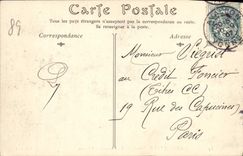 Carte Postale
Tous les pays étrangers n'acceptent pas la correspondance au recto.
Se renseigner à la poste.
Correspondance Adresse
89
Monsieur
au Credit Foncier
(Titres CC)
19 Rue des Capucines
Paris